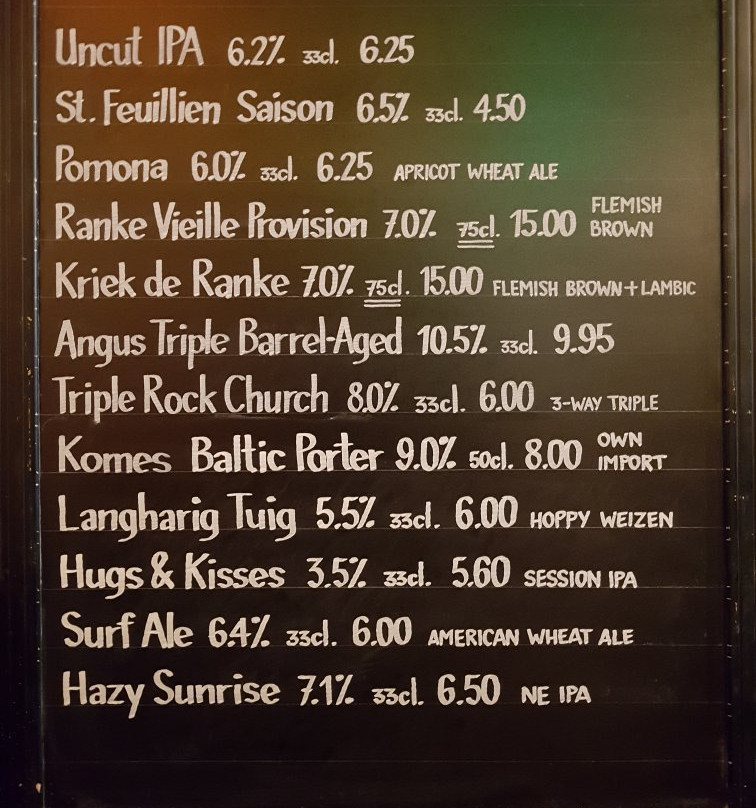 Uncut IPA 6.2% 33cl. 6.25
St. Feuillien Saison 6.5% 33cl. 4.50
Pomona 6.0% 33cl. 6.25 APRICOT WHEAT ALE
Ranke Vieille Provision 7.0% 75cl. 15.00 FLEMISH BROWN
Kriek de Ranke 7.0% 75cl. 15.00 FLEMISH BROWN + LAMBIC
Angus Triple Barrel-Aged 10.5% 33cl. 9.95
Triple Rock Church 8.0% 33cl. 6.00 3-WAY TRIPLE
Komes Baltic Porter 9.0% 50cl. 8.00 OWN IMPORT
Langharig Tuig 5.5% 33cl. 6.00 HOPPY WEIZEN
Hugs & Kisses 3.5% 33cl. 5.60 SESSION IPA
Surf Ale 6.4% 33cl. 6.00 AMERICAN WHEAT ALE
Hazy Sunrise 7.1% 33cl. 6.50 NE IPA